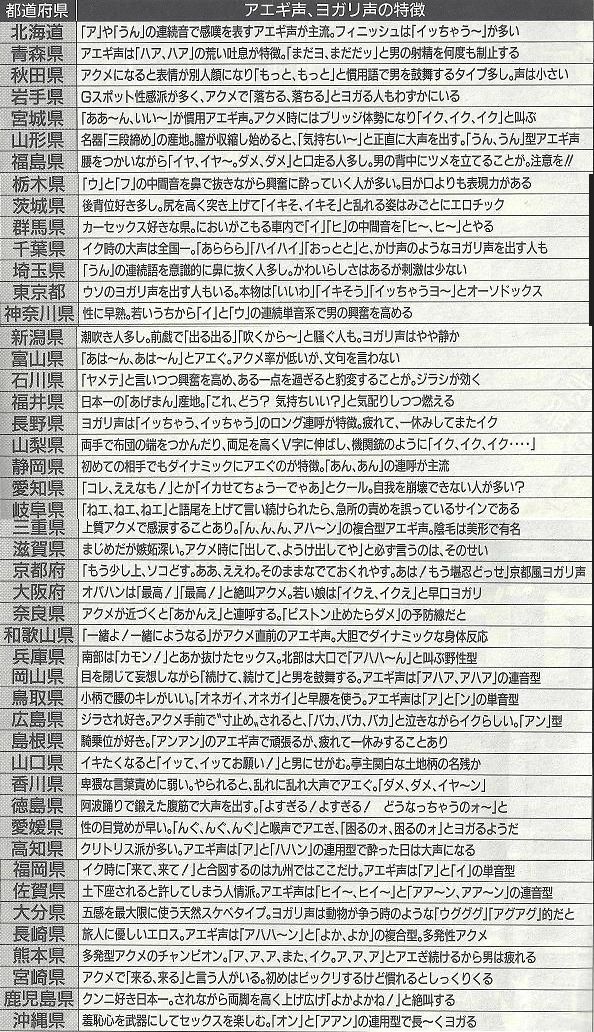 都道府県 アエギ声、ヨガリ声の特徴
北海道 「ア」や「うん」の連続音で感嘆を表すアエギ声が主流。フィニッシュは「イッちゃう〜」が多い
青森県 アエギ声は「ハア、ハア」の荒い吐息が特徴。「まだヨ、まだだッ」と男の射精を何度も制止する
秋田県 アクメになると表情が別人顔になり「もっと、もっと」と慣用語で男を鼓舞するタイプ多し。声は小さい
岩手県 Gスポット性感派が多く、アクメで「落ちる、落ちる」とヨガる人もわずかにいる
宮城県 「ああ〜ん、いい〜」が慣用アエギ声。アクメ時にはブリッジ体勢になり「イク、イク、イク」と叫ぶ
山形県 名器「三段締め」の産地。膣が収縮し始めると、「気持ちい〜」と正直に大声を出す。「うん、うん」型アエギ声
福島県 腰をつかいながら「イヤ、イヤ〜。ダメ、ダメ」と口走る人多し。男の背中にツメを立てることが。注意を!!
栃木県 「ウ」と「フ」の中間音を鼻で抜きながら興奮に酔っていく人が多い。目が口よりも表現力がある
茨城県 後背位好き多し。尻を高く突き上げて「イキそ、イキそ」と乱れる姿はみごとにエロチック
群馬県 カーセックス好きな県。においがこもる車内で「イ」「ヒ」の中間音を「ヒ〜、ヒ〜」とやる
千葉県 イク時の大声は全国一。「あららら」「ハイハイ」「おっとと」と、かけ声のようなヨガリ声を出す人も
埼玉県 「うん」の連続語を意識的に鼻に抜く人多し。かわいらしさはあるが刺激は少ない
東京都 ウソのヨガリ声を出す人もいる。本物は「いいわ」「イキそう」「イッちゃうヨ〜」とオーソドックス
神奈川県 性に早熟。若いうちから「イ」と「ウ」の連続単音系で男の興奮を高める
新潟県 潮吹き人多し。前戯で「出る出る」「吹くから〜」と騒ぐ人も。ヨガリ声はやや静か
富山県 「あは〜ん、あは〜ん」とアエぐ。アクメ率が低いが、文句を言わない
石川県 「ヤメテ」と言いつつ興奮を高め、ある一点を過ぎると豹変することが。ジラシが効く
福井県 日本一の「あげまん」産地。「これ、どう? 気持ちいい?」と気配りしつつ燃える
長野県 ヨガリ声は「イッちゃう、イッちゃう」のロング連呼が特徴。疲れて、一休みしてまたイク
山梨県 両手で布団の端をつかんだり、両足を高くV字に伸ばし、機関銃のように「イク、イク、イク・・・・」
静岡県 初めての相手でもダイナミックにアエぐのが特徴。「あん、あん」の連呼が主流
愛知県 「コレ、ええなも!」とか「イカせてちょうーでゃあ」とクール。自我を崩壊できない人が多い?
岐阜県 「ねエ、ねエ、ねエ」と語尾を上げて言い続けられたら、急所の責めを誤っているサインである
三重県 上質アクメで感涙することあり。「ん、ん、ん、アハ〜ン」の複合型アエギ声。陰毛は美形で有名
滋賀県 まじめだが嫉妬深い。アクメ時に「出して、ようけ出してや」と必ず言うのは、そのせい
京都府 「もう少し上、ソコどす。ああ、ええわ。そのままなでておくれやす。あは!もう堪忍どっせ」京都風ヨガリ声
大阪府 オバハンは「最高!」「最高!」と絶叫アクメ。若い娘は「イクえ、イクえ」と早口ヨガリ
奈良県 アクメが近づくと「あかんえ」と連呼する。「ピストン止めたらダメ」の予防線だと
和歌山県 「一緒よ!一緒にようなる」がアクメ直前のアエギ声。大胆でダイナミックな身体反応
兵庫県 南部は「カモン!」とあか抜けたセックス。北部は大口で「アハハ〜ん」と叫ぶ野性型
岡山県 目を閉じて妄想しながら「続けて、続けて」と男を鼓舞する。アエギ声は「アハア、アハア」の連音型
鳥取県 小柄で腰のキレがいい。「オネガイ、オネガイ」と早腰を使う。アエギ声は「ア」と「ン」の単音型
広島県 ジラされ好き。アクメ手前で“寸止め”されると、「バカ、バカ、バカ」と泣きながらイクらしい。「アン」型
島根県 騎乗位が好き。「アンアン」のアエギ声で頑張るが、疲れて一休みすることあり
山口県 イキたくなると「イッて、イッてお願い!」と男にせがむ。亭主関白な土地柄の名残か
香川県 卑猥な言葉責めに弱い。やられると、乱れに乱れ大声でアエぐ。「ダメ、ダメ、イヤ〜ン」
徳島県 阿波踊りで鍛えた腹筋で大声を出す。「よすぎる!よすぎる! どうなっちゃうのォ〜」と
愛媛県 性の目覚めが早い。「んぐ、んぐ、んぐ」と喉声でアエぎ、「困るのォ、困るのォ」とヨガるようだ
高知県 クリトリス派が多い。アエギ声は「ア」と「ハハン」の連用型で酔った日は大声になる
福岡県 イク時に「来て、来て!」と合図するのは九州ではここだけ。アエギ声は「ア」と「イ」の単音型
佐賀県 土下座されると許してしまう人情派。アエギ声は「ヒイ〜、ヒイ〜」と「アア〜ン、アア〜ン」の連音型
大分県 五感を最大限に使う天然スケベタイプ。ヨガリ声は動物が争う時のような「ウグググ」「アグアグ」的だと
長崎県 旅人に優しいエロス。アエギ声は「アハハ〜ン」と「よか、よか」の複合型。多発性アクメ
熊本県 多発型アクメのチャンピオン。「ア、ア、ア、また、イク。ア、ア、ア」とアエぎ続けるから男は疲れる
宮崎県 アクメで「来る、来る」と言う人がいる。初めはビックリするけど慣れるとしっくりくる
鹿児島県 クンニ好き日本一。されながら両脚を高く上げ広げ「よかよかね!」と絶叫する
沖縄県 羞恥心を武器にしてセックスを楽しむ。「オン」と「アアン」の連用型で長〜くヨガる